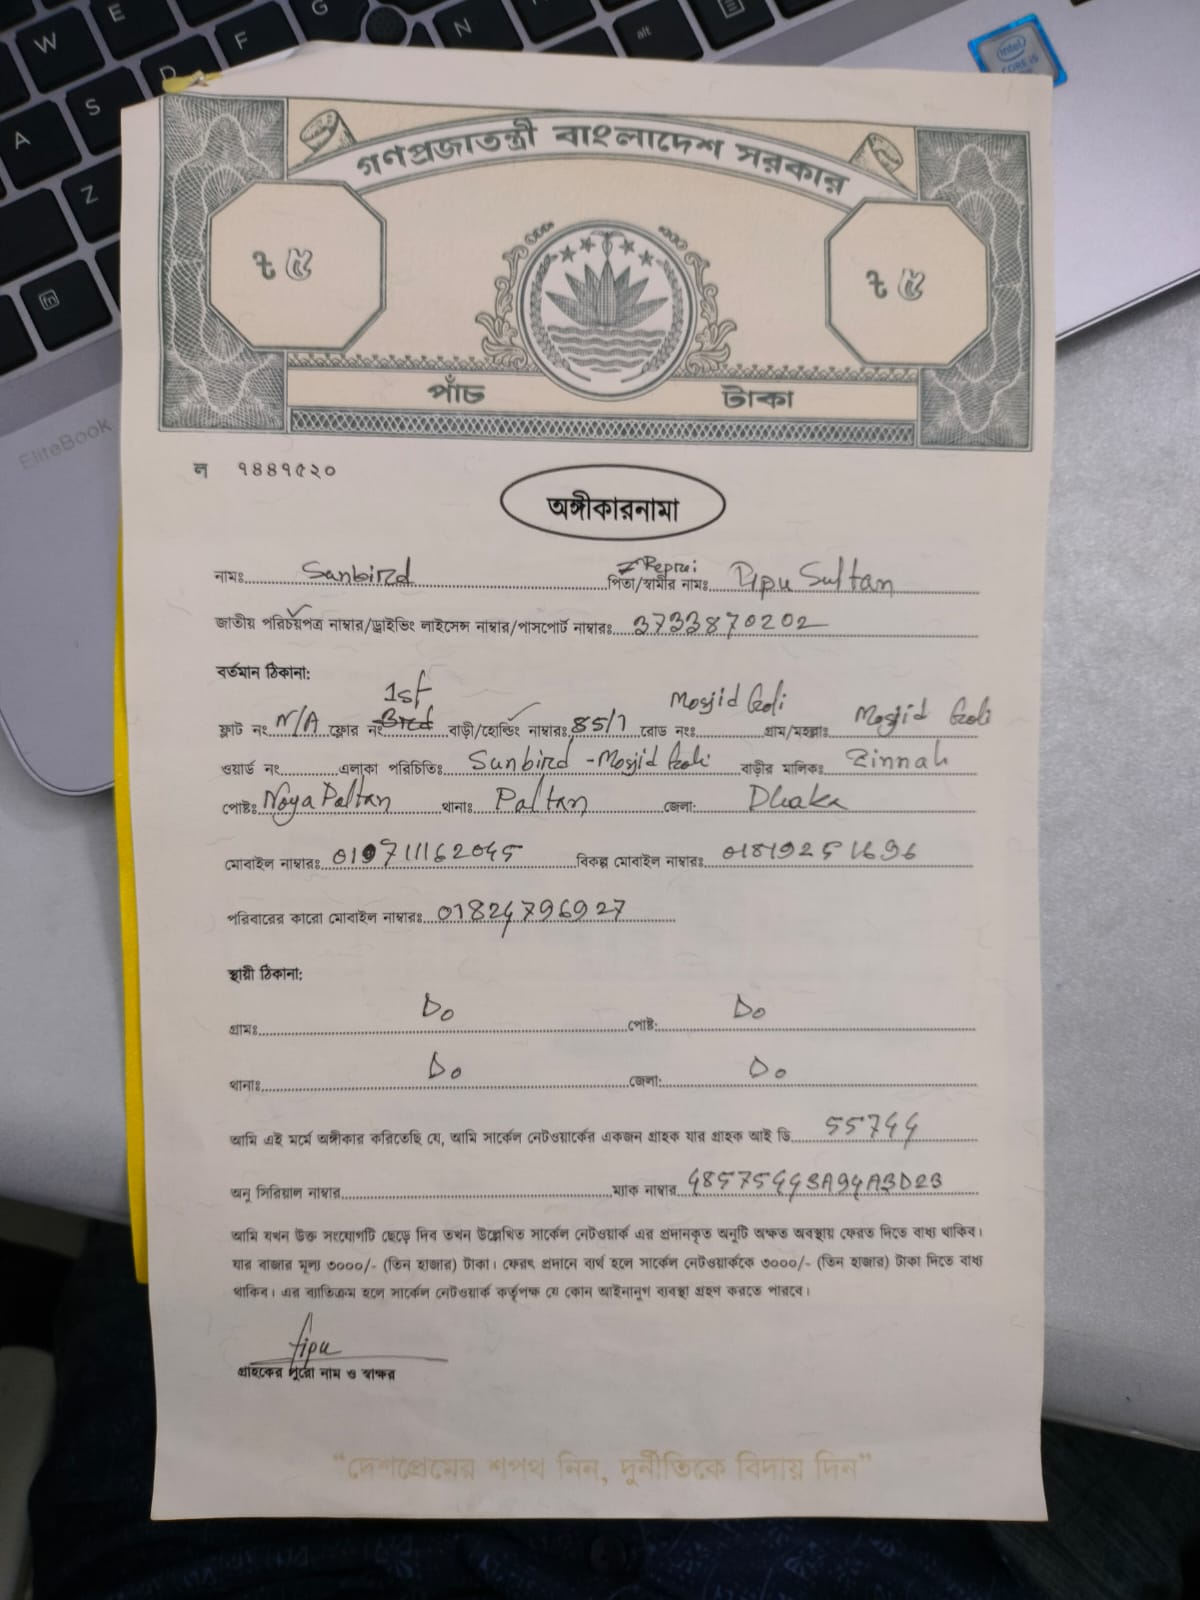 W E F G N alt
A S D
Z
fn
intel
CORE i5
EliteBook
গণপ্রজাতন্ত্রী বাংলাদেশ সরকার
৳ ৫ ৳ ৫
পাঁচ টাকা
ল ৭৪৪৭৫২০
অঙ্গীকারনামা
নামঃ Sunbird পিতা/স্বামীর নামঃ Pipu Sultan
জাতীয় পরিচয়পত্র নাম্বার/ড্রাইভিং লাইসেন্স নাম্বার/পাসপোর্ট নাম্বারঃ 3733870202
বর্তমান ঠিকানা:
ফ্লাট নং N/A ফ্লোর নং 1st বাড়ী/হোল্ডিং নাম্বারঃ 85/1 রোড নংঃ Mosjid Goli গ্রাম/মহল্লাঃ Mosjid Goli
ওয়ার্ড নং এলাকা পরিচিতিঃ Sunbird - Mosjid Goli বাড়ীর মালিকঃ Zinnah
পোষ্টঃ Noya Paltan থানাঃ Paltan জেলা: Dhaka
মোবাইল নাম্বারঃ বিকল্প মোবাইল নাম্বারঃ
পরিবারের কারো মোবাইল নাম্বারঃ 01824796927
স্থায়ী ঠিকানা:
গ্রামঃ Do পোষ্ট: Do
থানাঃ Do জেলা: Do
আমি এই মর্মে অঙ্গীকার করিতেছি যে, আমি সার্কেল নেটওয়ার্কের একজন গ্রাহক যার গ্রাহক আই ডি 55744
অনু সিরিয়াল নাম্বার ম্যাক নাম্বার 48575443A94A3D2B
আমি যখন উক্ত সংযোগটি ছেড়ে দিব তখন উল্লেখিত সার্কেল নেটওয়ার্ক এর প্রদানকৃত অনুটি অক্ষত অবস্থায় ফেরত দিতে বাধ্য থাকিব।
যার বাজার মূল্য ৩০০০/- (তিন হাজার) টাকা। ফেরৎ প্রদানে ব্যর্থ হলে সার্কেল নেটওয়ার্ককে ৩০০০/- (তিন হাজার) টাকা দিতে বাধ্য
থাকিব। এর ব্যাতিক্রম হলে সার্কেল নেটওয়ার্ক কর্তৃপক্ষ যে কোন আইনানুগ ব্যবস্থা গ্রহণ করতে পারবে।
tipu
গ্রাহকের পুরো নাম ও স্বাক্ষর
“দেশপ্রেমের শপথ নিন, দুর্নীতিকে বিদায় দিন”